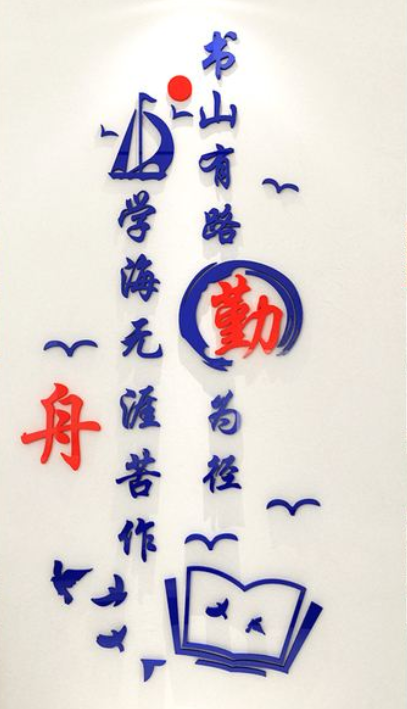 书山有路勤为径
学海无涯苦作
舟